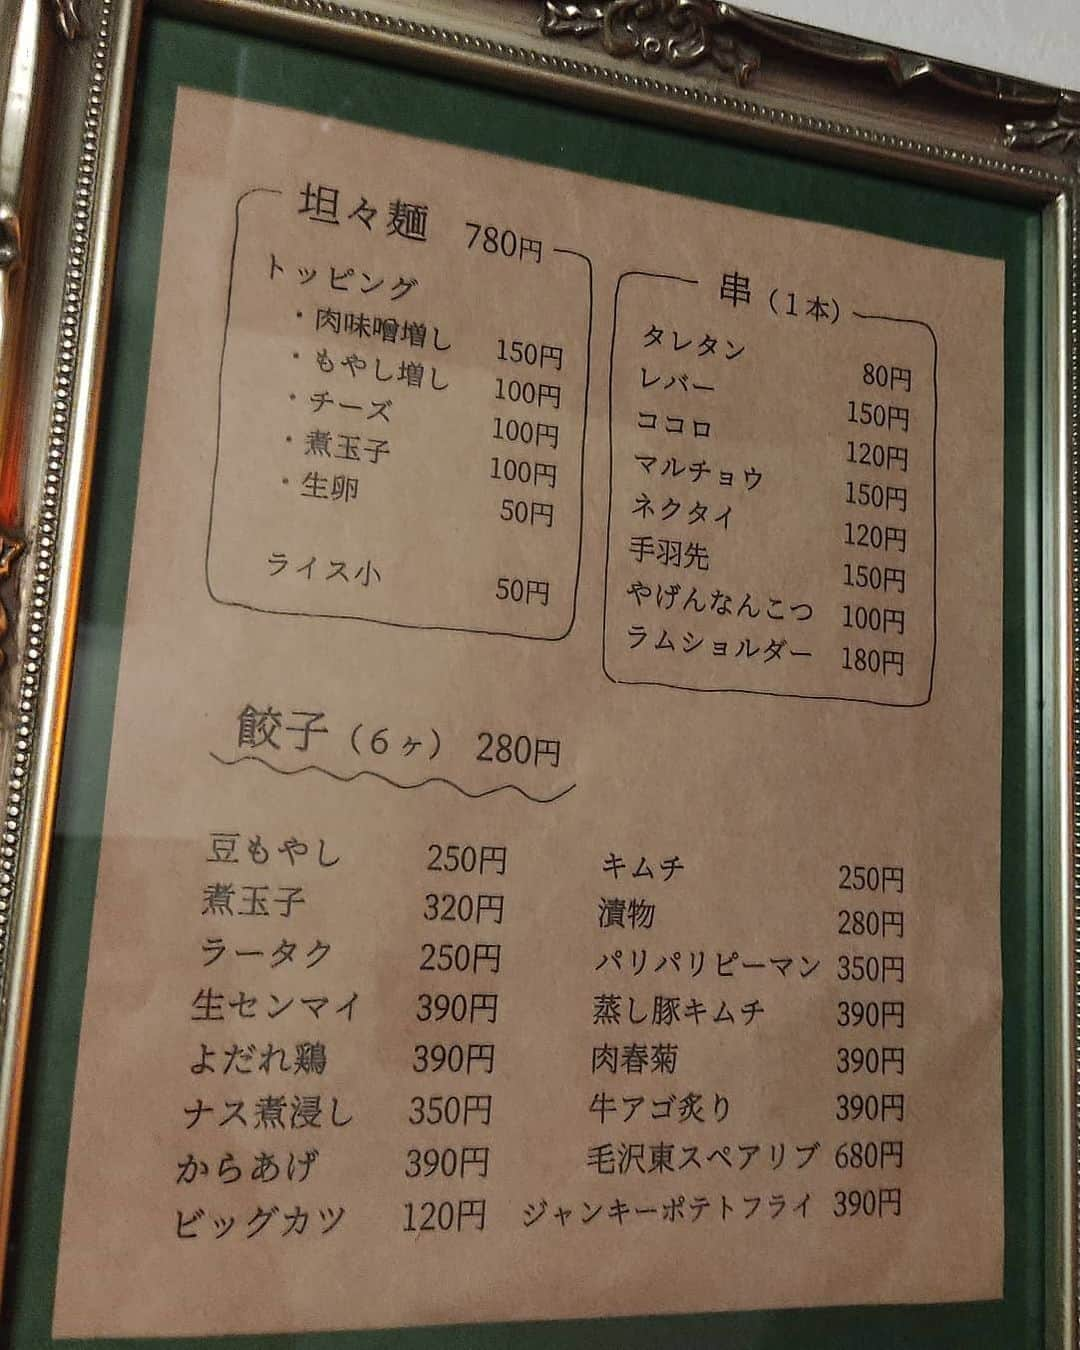 坦々麺 780円
トッピング
・肉味噌増し 150円
・もやし増し 100円
・チーズ 100円
・煮玉子 100円
・生卵 50円
ライス小 50円
串（1本）
タレタン 80円
レバー 150円
ココロ 120円
マルチョウ 150円
ネクタイ 120円
手羽先 150円
やげんなんこつ 100円
ラムショルダー 180円
餃子（6ヶ） 280円
豆もやし 250円
煮玉子 320円
ラータク 250円
生センマイ 390円
よだれ鶏 390円
ナス煮浸し 350円
からあげ 390円
ビッグカツ 120円
キムチ 250円
漬物 280円
パリパリピーマン 350円
蒸し豚キムチ 390円
肉春菊 390円
牛アゴ炙り 390円
毛沢東スペアリブ 680円
ジャンキーポテトフライ 390円